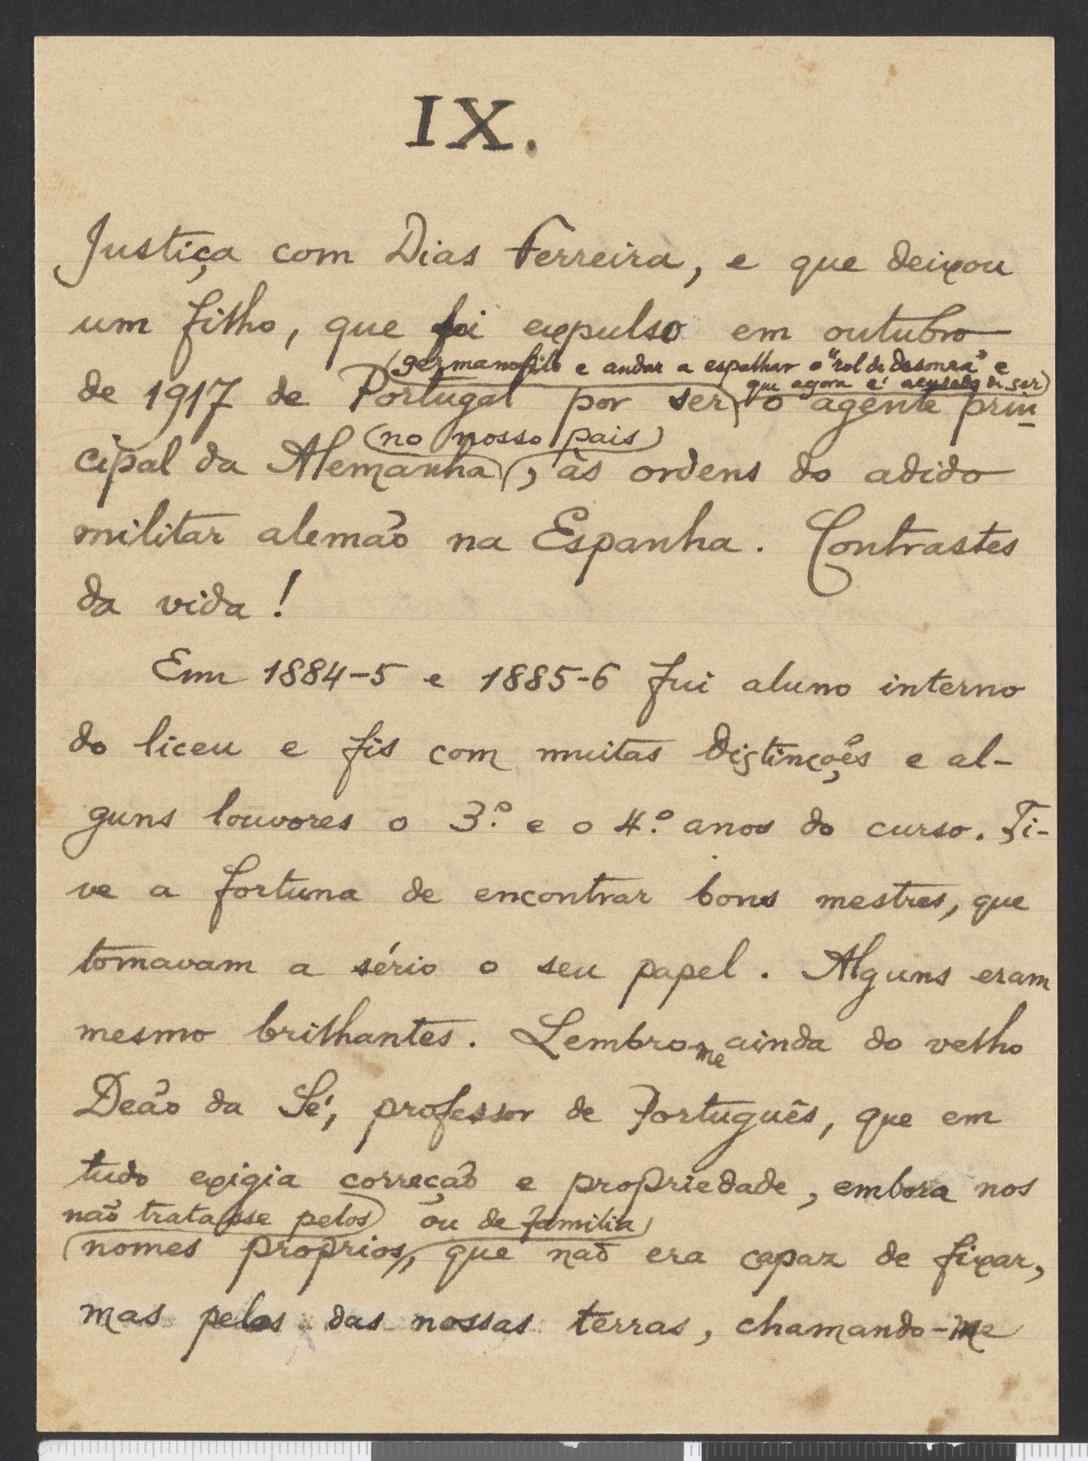 IX.
Justiça com Dias Ferreira, e que deixou
um filho, que foi expulso em outubro
germanofilo e andar a espalhar o "rol de desonra" e
que agora é acusado de ser
de 1917 de Portugal por ser o agente prin-
no nosso pais
cipal da Alemanha, às ordens do adido
militar alemão na Espanha. Contrastes
da vida!
Em 1884-5 e 1885-6 fui aluno interno
do liceu e fis com muitas distinções e al-
guns louvores o 3.º e o 4.º anos do curso. Ti-
ve a fortuna de encontrar bons mestres, que
tomavam a sério o seu papel. Alguns eram
mesmo brilhantes. Lembro-me ainda do velho
Deão da Sé, professor de Português, que em
tudo exigia correção e propriedade, embora nos
não tratasse pelos ou de familia
nomes proprios, que não era capaz de fixar,
mas pelos das nossas terras, chamando-me